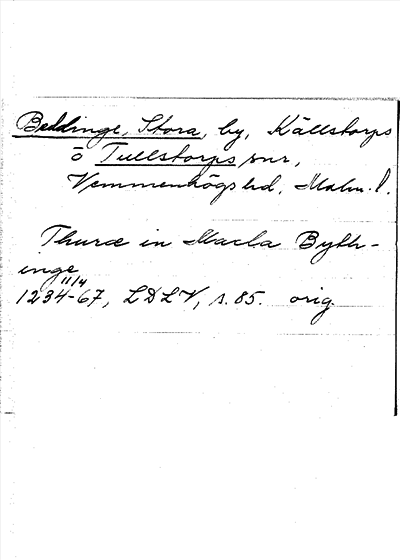 Beddinge, Stora, by, Källstorps
o Tullstorps snr,
Vemmenhögs hd, Malm. l.
Thuræ in Marla Byth-
inge
11/4
1234-67, LDLV, s. 85. orig.